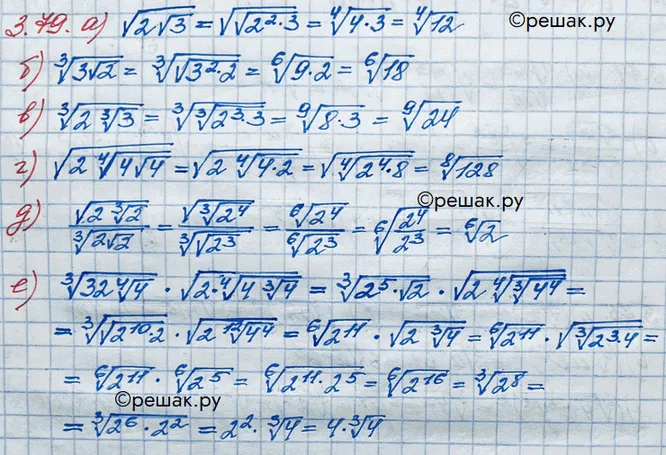 3.79. а) √(2√3) = √(√(2²·3)) = ⁴√(4·3) = ⁴√12 ©решак.ру
б) ³√(3√2) = ³√(√(3²·2)) = ⁶√(9·2) = ⁶√18
в) ³√(2 ³√3) = ³√(³√(2³·3)) = ⁹√(8·3) = ⁹√24
г) √(2 ⁴√(4√4)) = √(2 ⁴√(4·2)) = √(⁴√(2⁴·8)) = ⁸√128
©решак.ру
д) √(2 ³√2) / ³√(2√2) = √(³√(2⁴)) / ³√(√(2³)) = ⁶√(2⁴) / ⁶√(2³) = ⁶√(2⁴/2³) = ⁶√2
е) ³√(32 ⁴√4) · √(2·⁴√(4 ³√4)) = ³√(2⁵·√2) · √(2 ⁴√(³√(4⁴))) =
= ³√(√(2¹⁰·2)) · √(2 ¹²√(4⁴)) = ⁶√(2¹¹) · √(2 ³√4) = ⁶√(2¹¹) · √(³√(2³·4)) =
= ⁶√(2¹¹) · ⁶√(2⁵) = ⁶√(2¹¹·2⁵) = ⁶√(2¹⁶) = ³√(2⁸) =
©решак.ру
= ³√(2⁶·2²) = 2²·³√4 = 4·³√4